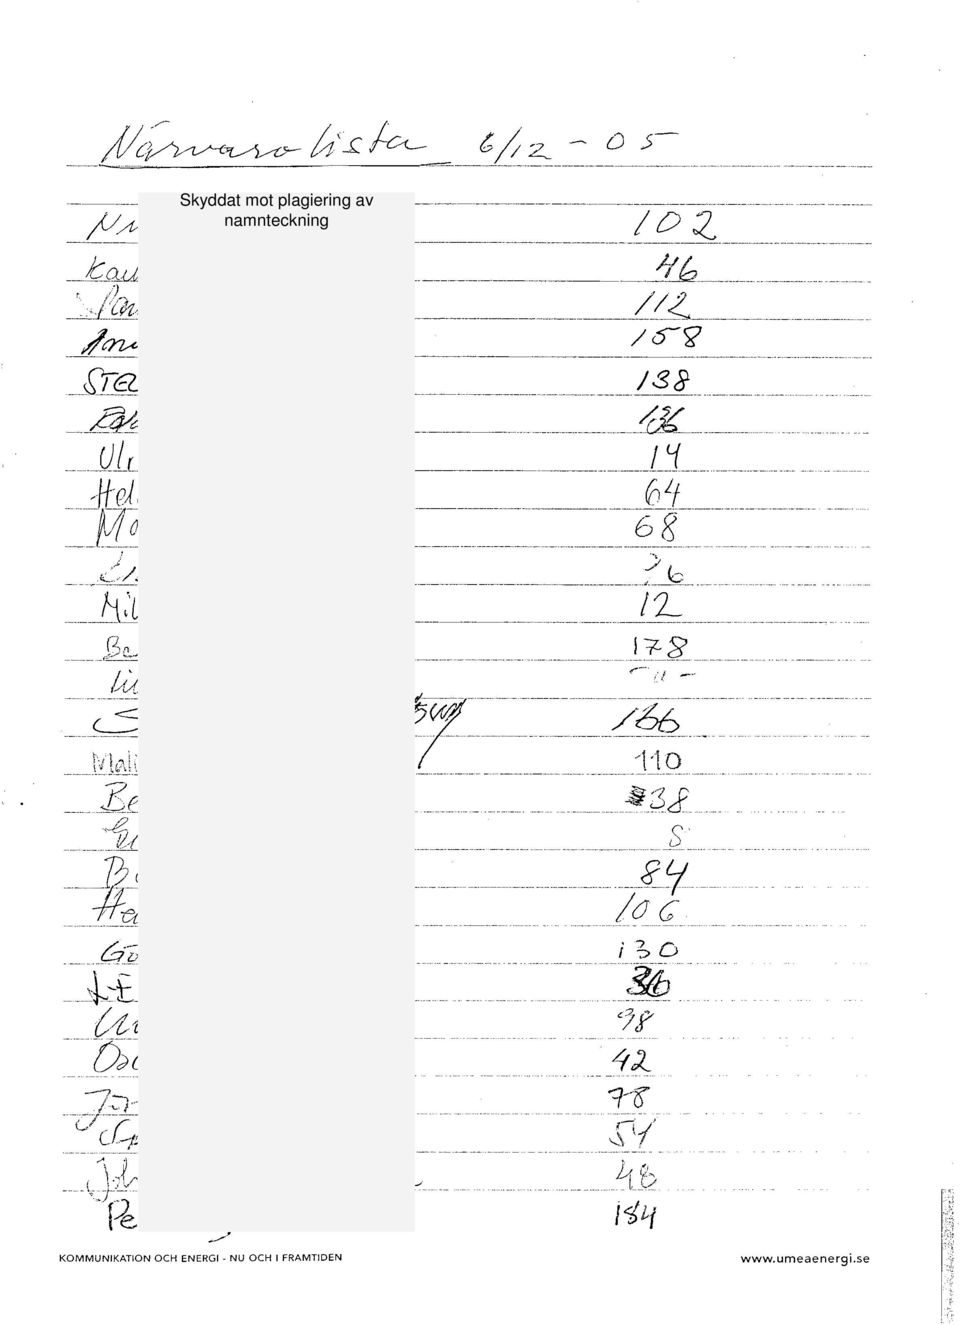 Närvarolista 6/12 - 05
Skyddat mot plagiering av
namnteckning
102
Kau 46
112
158
STEL 138
136
Ulr 14
Hel 64
Mo 68
Mil 12
Be 178
Lil - " -
S 166
Mali 110
Be 38
84
He 106
Gö 130
LE 36
98
Osc 42
78
54
Joh 48
Pe 184
KOMMUNIKATION OCH ENERGI - NU OCH I FRAMTIDEN www.umeaenergi.se